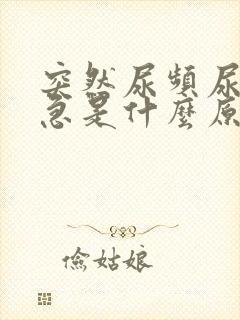 突然尿頻尿
急是什麼原
儉姑娘